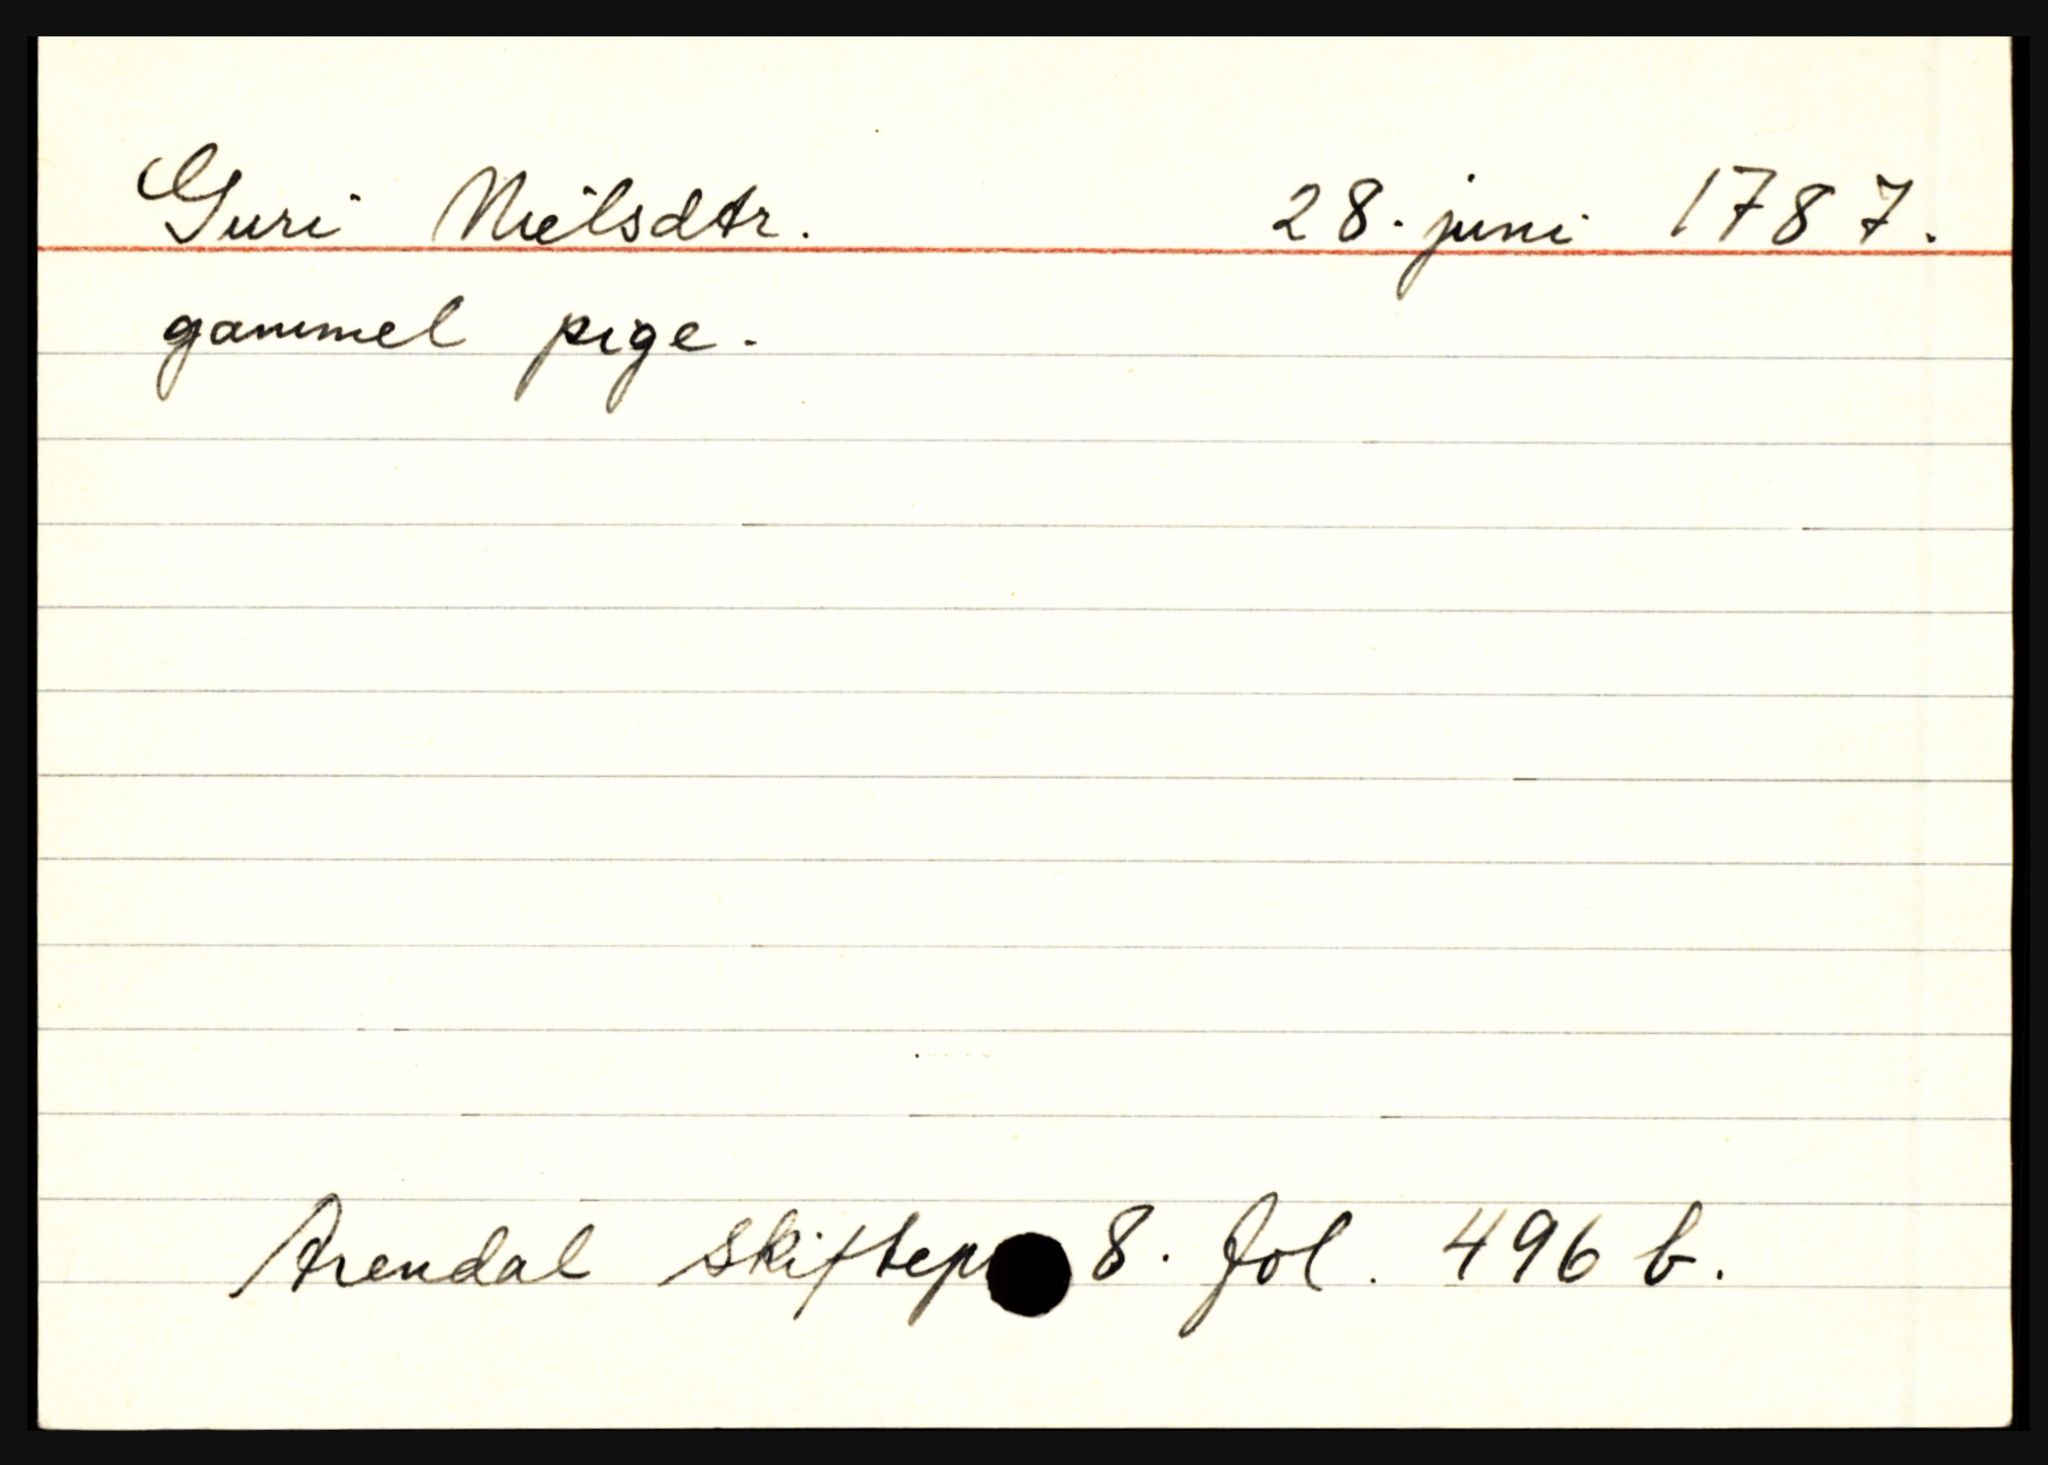 Guri Nielsdtr. 28. juni 1787.
gammel pige.
Arendal skiftep 8. fol. 496 b.